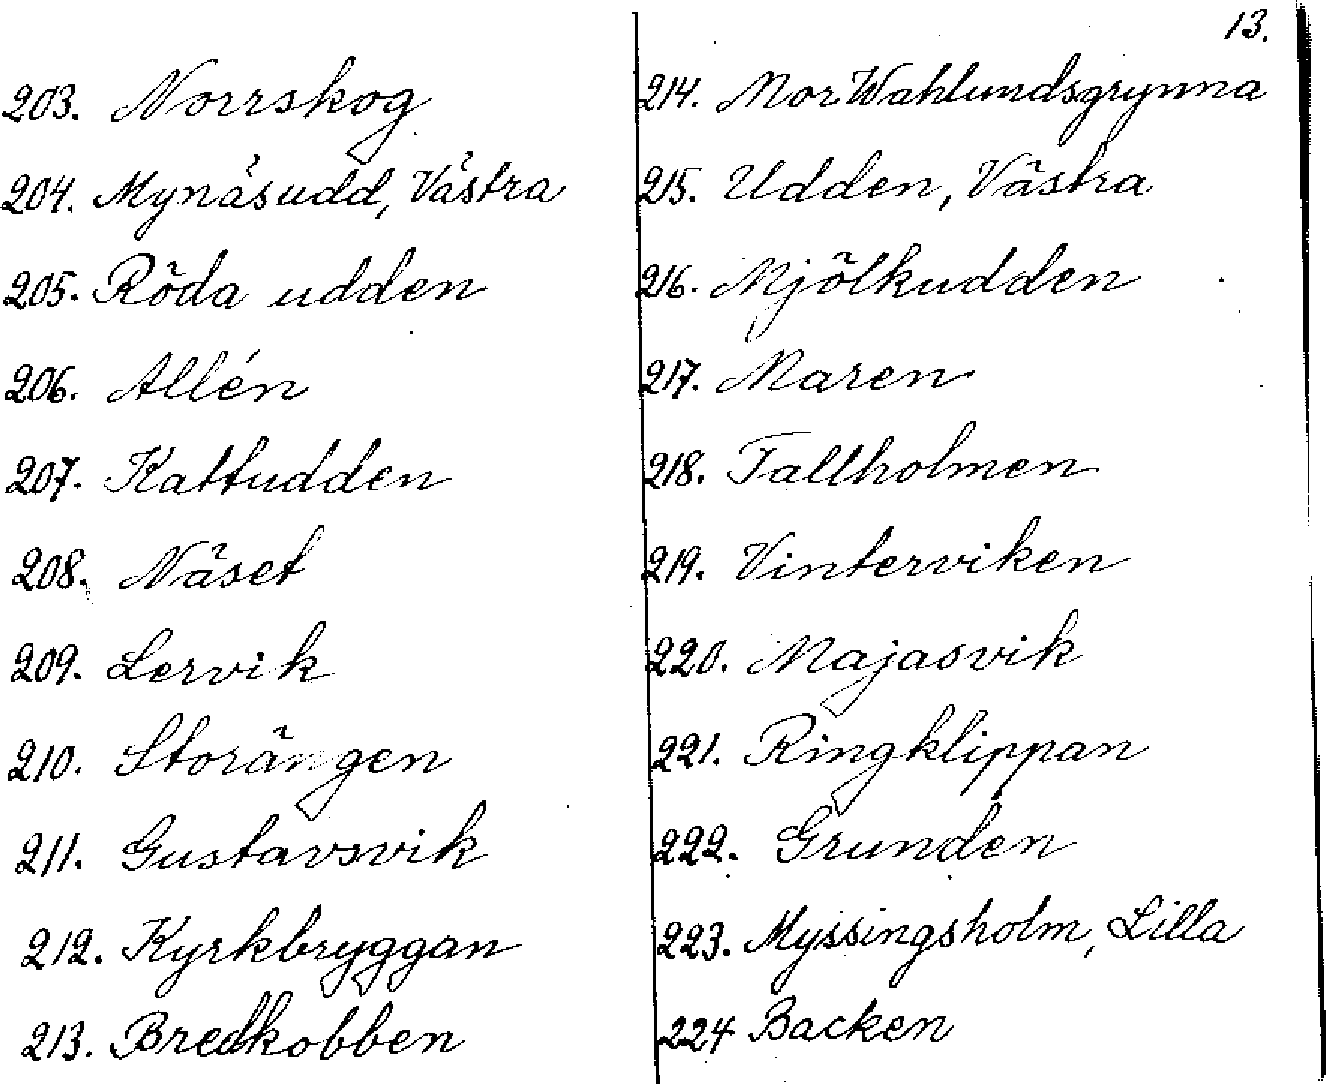 13.
203. Norrskog
204. Mynäsudd, Västra
205. Röda udden
206. Allén
207. Kattudden
208. Näset
209. Lervik
210. Storängen
211. Gustavsvik
212. Kyrkbryggan
213. Bredkobben
214. Mor Wahlundsgrynna
215. Udden, Västra
216. Mjölkudden
217. Maren
218. Tallholmen
219. Vinterviken
220. Majasvik
221. Ringklippan
222. Grunden
223. Myssingsholm, Lilla
224 Backen